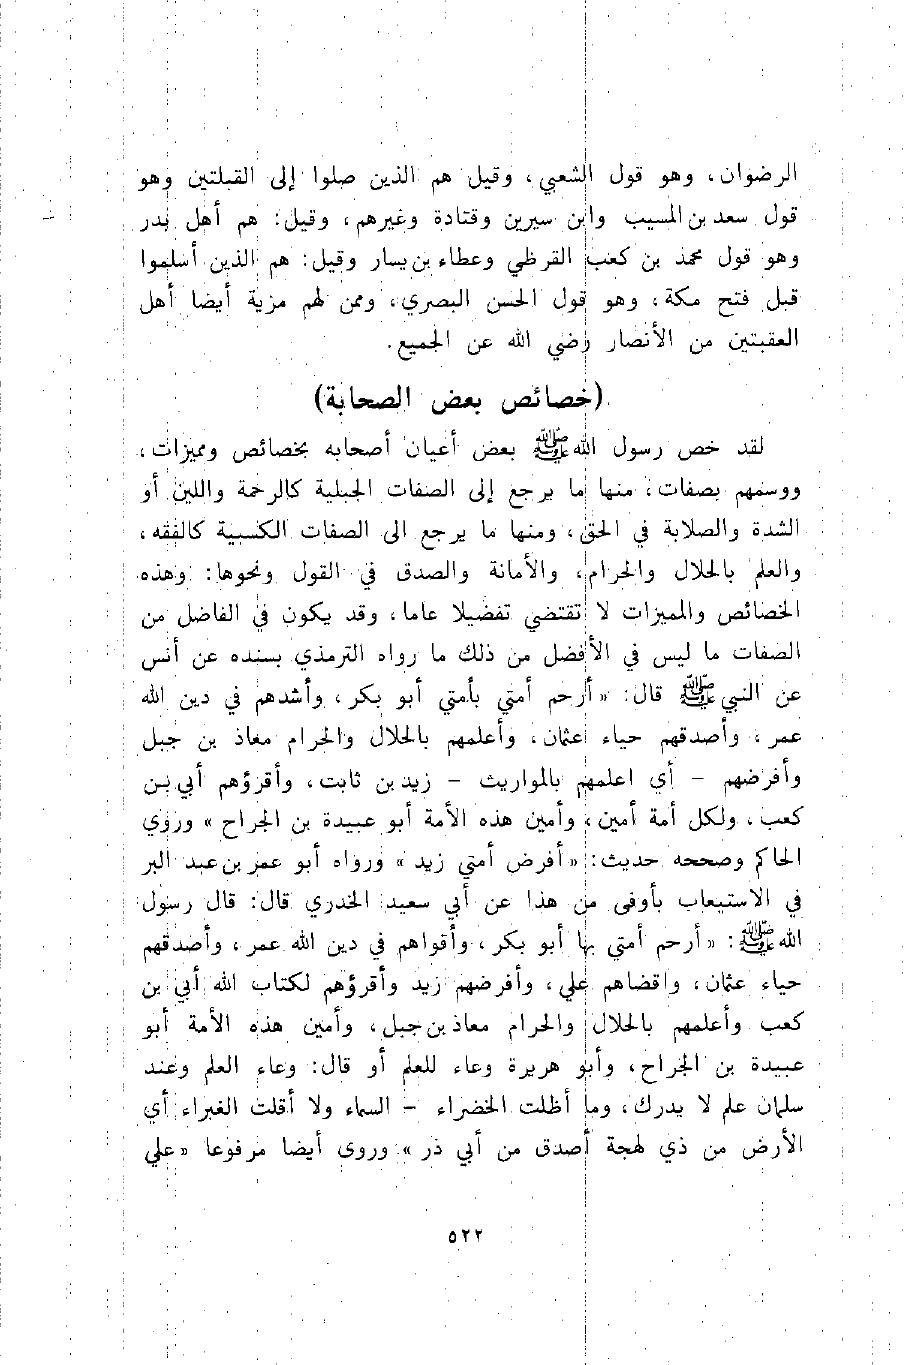 الرضوان، وهو قول الشعبي، وقيل هم الذين صلوا إلى القبلتين وهو
قول سعد بن المسيب وابن سيرين وقتادة وغيرهم، وقيل: هم أهل بدر
وهو قول محمد بن كعب القرظي وعطاء بن يسار وقيل: هم الذين أسلموا
قبل فتح مكة، وهو قول الحسن البصري، وممن لهم مزية أيضا أهل
العقبتين من الأنصار رضي الله عن الجميع.
(خصائص بعض الصحابة)
لقد خص رسول الله ﷺ بعض أعيان أصحابه بخصائص ومميزات،
ووسمهم بصفات، منها ما يرجع إلى الصفات الجبلية كالرحمة واللين أو
الشدة والصلابة في الحق، ومنها ما يرجع الى الصفات الكسبية كالفقه،
والعلم بالحلال والحرام، والأمانة والصدق في القول ونحوها: وهذه
الخصائص والمميزات لا تقتضي تفضيلا عاما، وقد يكون في الفاضل من
الصفات ما ليس في الأفضل من ذلك ما رواه الترمذي بسنده عن أنس
عن النبي ﷺ قال: «أرحم أمتي بأمتي أبو بكر، وأشدهم في دين الله
عمر، وأصدقهم حياء عثمان، وأعلمهم بالحلال والحرام معاذ بن جبل
وأفرضهم - أي اعلمهم بالمواريث - زيد بن ثابت، وأقرؤهم أبي بن
كعب، ولكل أمة أمين، وأمين هذه الأمة أبو عبيدة بن الجراح» وروي
الحاكم وصححه حديث: «أفرض أمتي زيد» ورواه أبو عمر بن عبد البر
في الاستيعاب بأوفى من هذا عن أبي سعيد الخدري قال: قال رسول
الله ﷺ: «أرحم أمتي بها أبو بكر، وأقواهم في دين الله عمر، وأصدقهم
حياء عثمان، واقضاهم علي، وأفرضهم زيد وأقرؤهم لكتاب الله أبي بن
كعب وأعلمهم بالحلال والحرام معاذ بن جبل، وأمين هذه الأمة أبو
عبيدة بن الجراح، وأبو هريرة وعاء للعلم أو قال: وعاء العلم وعند
سلمان علم لا يدرك، وما أظلت الخضراء - السماء ولا أقلت الغبراء أي
الأرض من ذي لهجة أصدق من أبي ذر» وروى أيضا مرفوعا «علي
٥٢٢